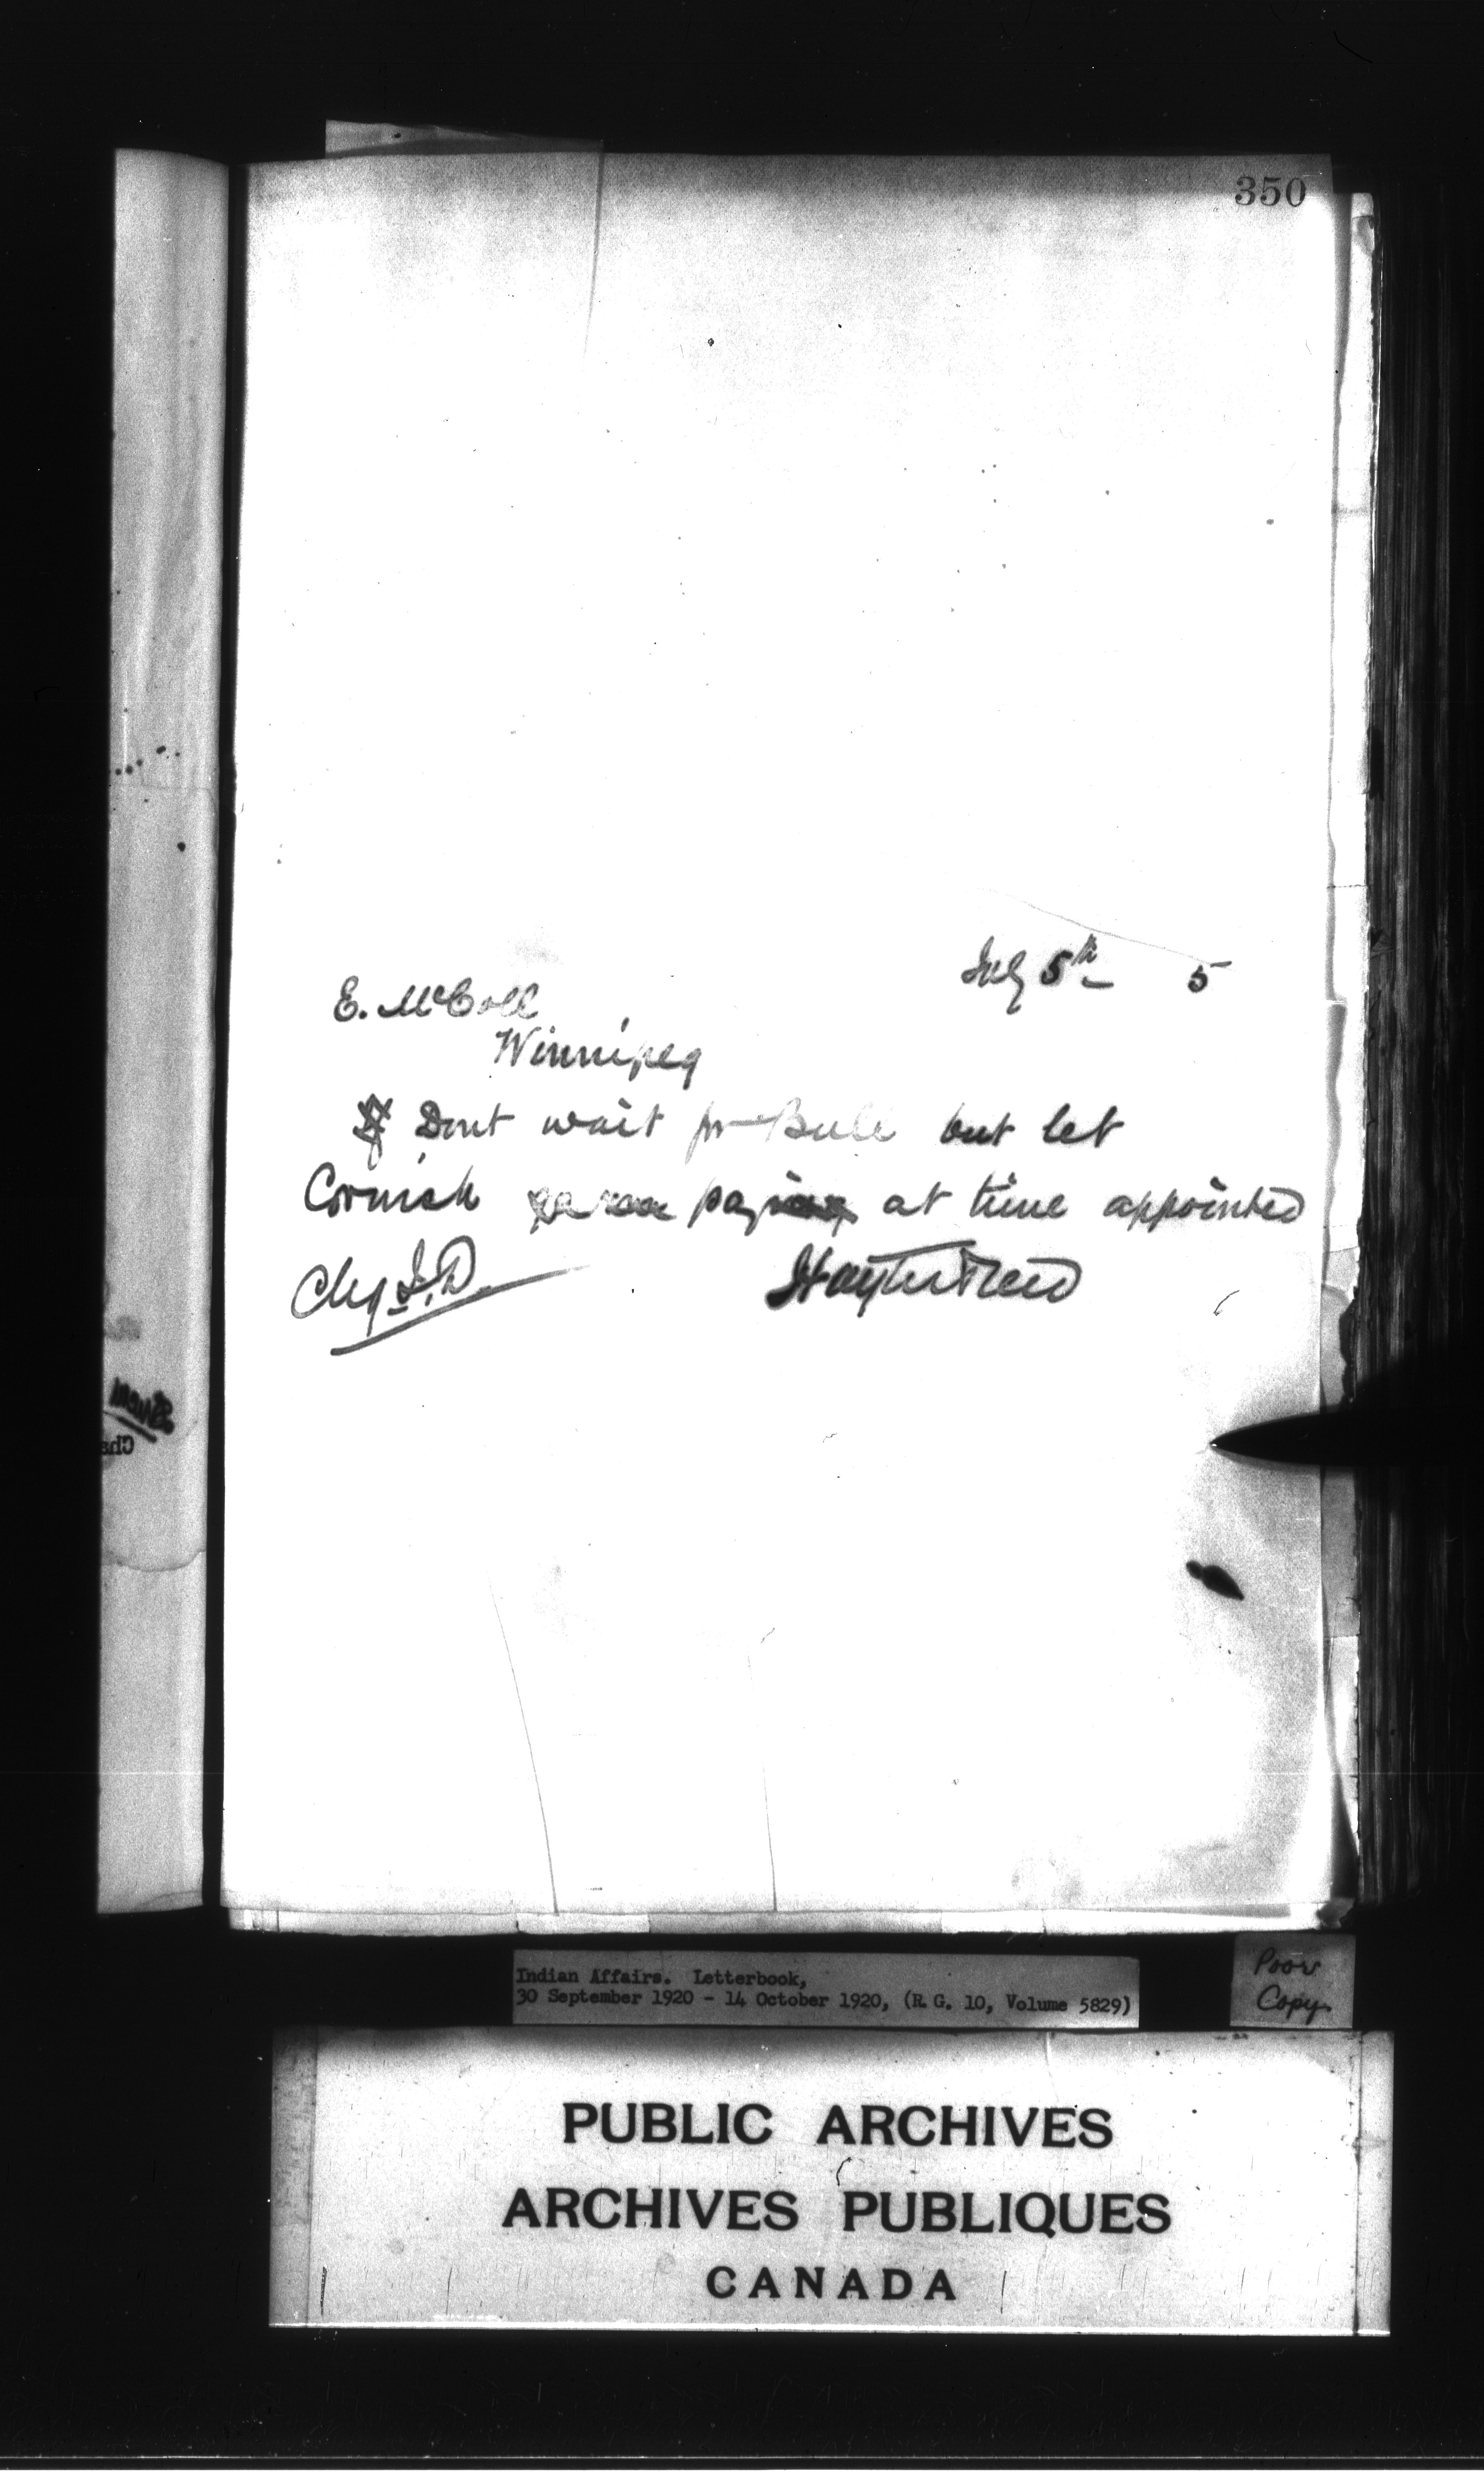 350
July 5th 5
E. McColl
Winnipeg
Dont wait for Bull but let
Cornish pay at time appointed
Chg I.D. Hayter Reed
Indian Affairs. Letterbook,
30 September 1920 - 14 October 1920, (R.G. 10, Volume 5829)
Poor
Copy
PUBLIC ARCHIVES
ARCHIVES PUBLIQUES
CANADA